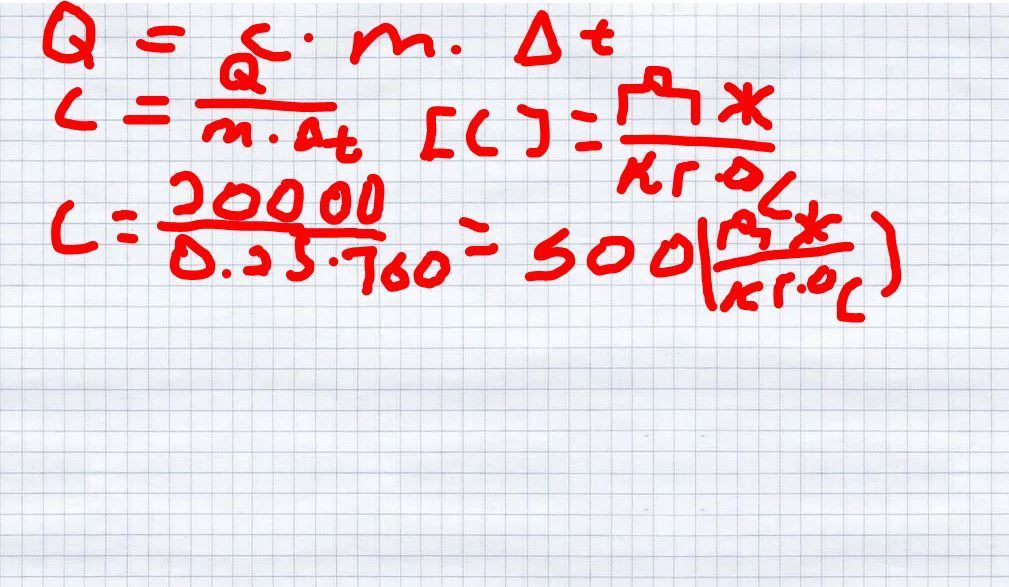 Q = c · m · Δt
c = Q / m · Δt [c] = Дж / кг · °C
c = 20000 / 0.25 · 160 = 500 (Дж / кг · °C)